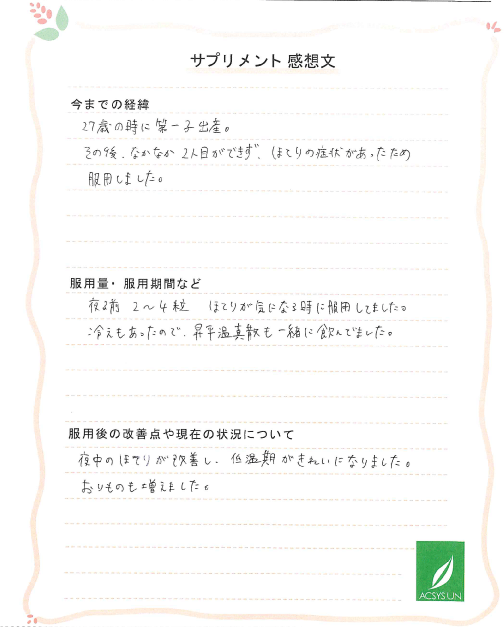 サプリメント 感想文
今までの経緯
27歳の時に第一子出産。
その後、なかなか2人目ができず、ほてりの症状があったため
服用しました。
服用量・服用期間など
夜寝る前 2〜4粒 ほてりが気になる時に服用してました。
冷えもあったので、昇平温真散も一緒に飲んでました。
服用後の改善点や現在の状況について
夜中のほてりが改善し、低温期がきれいになりました。
おりものも増えました。
ACSYSUN.